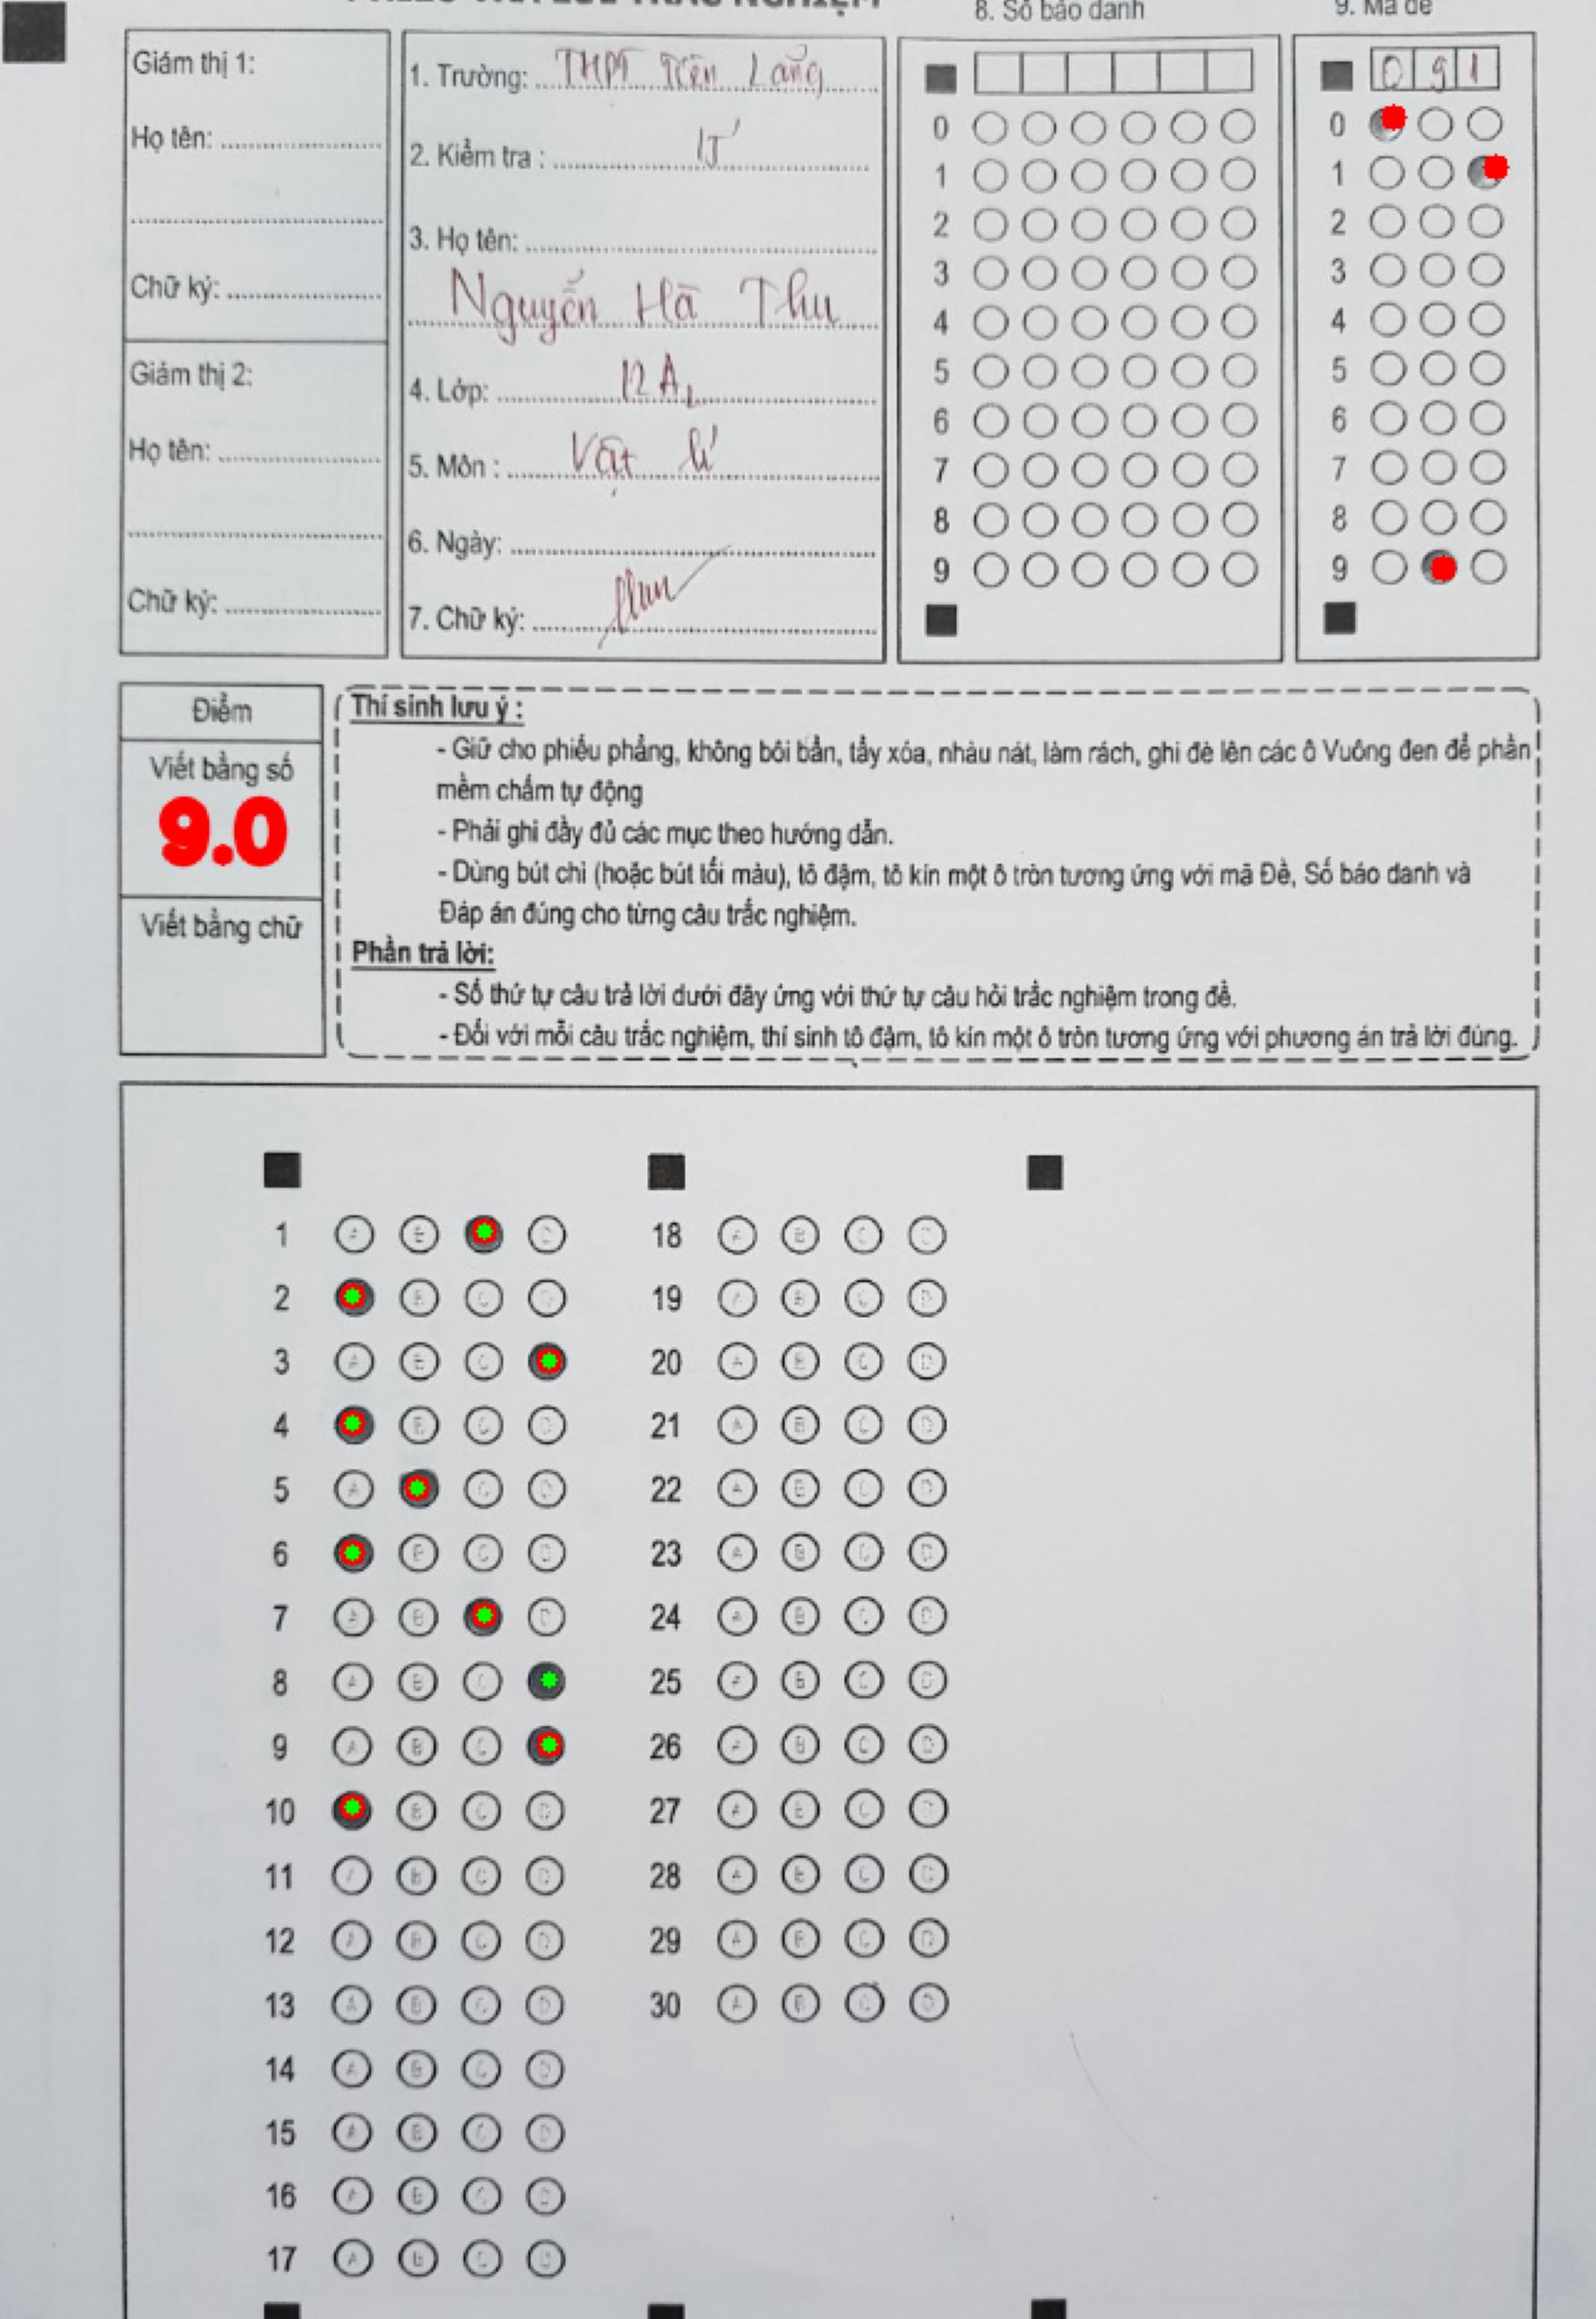 8. Số báo danh
9. Mã đề
Giám thị 1:
Họ tên:
Chữ ký:
Giám thị 2:
Họ tên:
Chữ ký:
1. Trường: THPT Tiên Lãng
2. Kiểm tra : 15'
3. Họ tên:
Nguyễn Hà Thu
4. Lớp: 12A1
5. Môn : Vật lí
6. Ngày:
7. Chữ ký:
0
1
2
3
4
5
6
7
8
9
0 9 1
0
1
2
3
4
5
6
7
8
9
Điểm
Viết bằng số
9.0
Viết bằng chữ
Thí sinh lưu ý :
- Giữ cho phiếu phẳng, không bôi bẩn, tẩy xóa, nhàu nát, làm rách, ghi đè lên các ô Vuông đen để phần
mềm chấm tự động
- Phải ghi đầy đủ các mục theo hướng dẫn.
- Dùng bút chì (hoặc bút tối màu), tô đậm, tô kín một ô tròn tương ứng với mã Đề, Số báo danh và
Đáp án đúng cho từng câu trắc nghiệm.
Phần trả lời:
- Số thứ tự câu trả lời dưới đây ứng với thứ tự câu hỏi trắc nghiệm trong đề.
- Đối với mỗi câu trắc nghiệm, thí sinh tô đậm, tô kín một ô tròn tương ứng với phương án trả lời đúng.
1 A B D
2 B C D
3 A B C
4 B C D
5 A C D
6 B C D
7 A B D
8 A B C
9 A B C
10 B C D
11 A B C D
12 A B C D
13 A B C D
14 A B C D
15 A B C D
16 A B C D
17 A B C D
18 A B C D
19 A B C D
20 A B C D
21 A B C D
22 A B C D
23 A B C D
24 A B C D
25 A B C D
26 A B C D
27 A B C D
28 A B C D
29 A B C D
30 A B C D